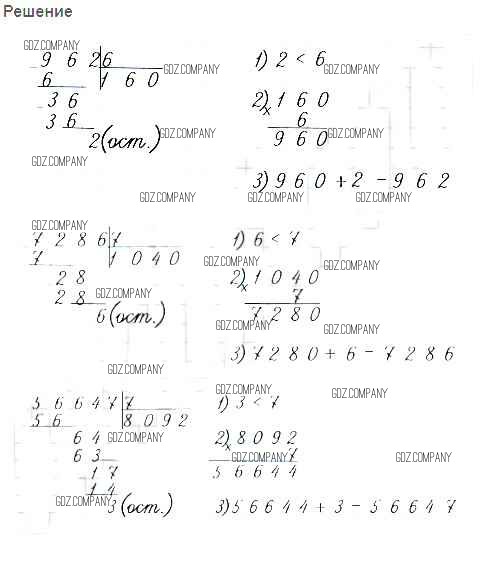 Решение
GDZ.COMPANY
9 6 2 6 1) 2 < 6
GDZ.COMPANY
6 1 6 0 GDZ.COMPANY GDZ.COMPANY
3 6 2) 1 6 0
x
3 6 6
2 (ост.) GDZ.COMPANY 9 6 0 GDZ.COMPANY
GDZ.COMPANY
3) 9 6 0 + 2 - 9 6 2
GDZ.COMPANY GDZ.COMPANY GDZ.COMPANY
GDZ.COMPANY
7 2 8 6 7 1) 6 < 7
7 1 0 4 0 GDZ.COMPANY GDZ.COMPANY
2 8 2) 1 0 4 0
x
2 8 GDZ.COMPANY 7
6 (ост.) 7 2 8 0
GDZ.COMPANY GDZ.COMPANY
3) 7 2 8 0 + 6 - 7 2 8 6
GDZ.COMPANY
GDZ.COMPANY GDZ.COMPANY
5 6 6 4 7 7 1) 3 < 7
5 6 8 0 9 2
6 4 GDZ.COMPANY 2) 8 0 9 2
x
6 3 GDZ.COMPANY 7 GDZ.COMPANY
1 7 5 6 6 4 4
1 4
GDZ.COMPANY 3 (ост.) 3) 5 6 6 4 4 + 3 - 5 6 6 4 7